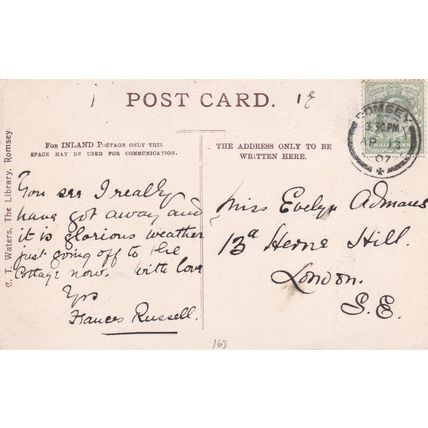 POST CARD.
1
ROMSEY
3.30 PM
AP
07
FOR INLAND POSTAGE ONLY THIS
SPACE MAY BE USED FOR COMMUNICATION.
THE ADDRESS ONLY TO BE
WRITTEN HERE.
C. T. Waters, The Library, Romsey.
You see I really
have got away and
it is glorious weather
just going off to the
Cottage now. With love
Yrs
Frances Russell.
Miss Evelyn Admans
13a Herne Hill.
London.
S.E.
163